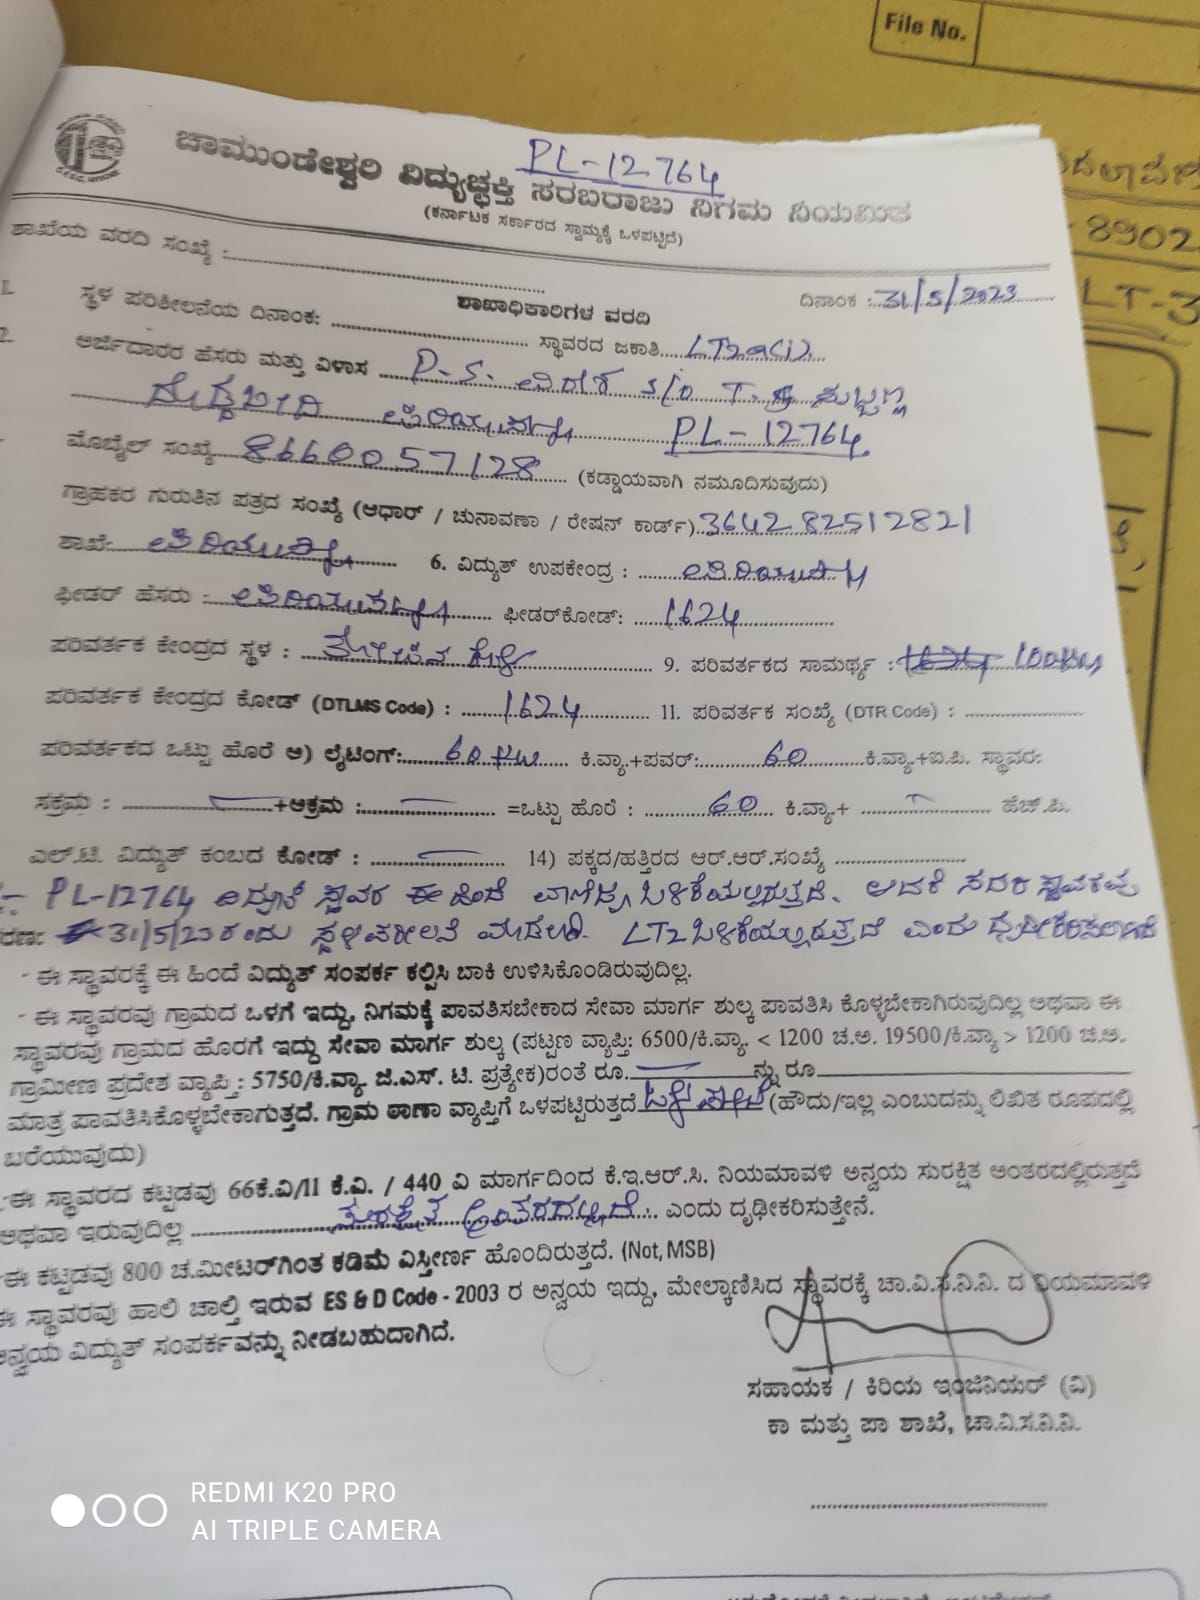 File No.
PL-12764
ಚಾಮುಂಡೇಶ್ವರಿ ವಿದ್ಯುಚ್ಛಕ್ತಿ ಸರಬರಾಜು ನಿಗಮ ನಿಯಮಿತ
(ಕರ್ನಾಟಕ ಸರ್ಕಾರದ ಸ್ವಾಮ್ಯಕ್ಕೆ ಒಳಪಟ್ಟಿದೆ)
8902
LT-3
ಶಾಖೆಯ ವರದಿ ಸಂಖ್ಯೆ :
ದಿನಾಂಕ : 31/5/2023
ಶಾಖಾಧಿಕಾರಿಗಳ ವರದಿ
1. ಸ್ಥಳ ಪರಿಶೀಲನೆಯ ದಿನಾಂಕ: ಸ್ಥಾವರದ ಜಕಾತಿ LT2a(i)
2. ಅರ್ಜಿದಾರರ ಹೆಸರು ಮತ್ತು ವಿಳಾಸ P.S. s/o T. ಸುಬ್ಬಣ್ಣ
PL-12764
ಮೊಬೈಲ್ ಸಂಖ್ಯೆ 8660057128 (ಕಡ್ಡಾಯವಾಗಿ ನಮೂದಿಸುವುದು)
ಗ್ರಾಹಕರ ಗುರುತಿನ ಪತ್ರದ ಸಂಖ್ಯೆ (ಆಧಾರ್ / ಚುನಾವಣಾ / ರೇಷನ್ ಕಾರ್ಡ್) 364282512821
ಶಾಖೆ: 6. ವಿದ್ಯುತ್ ಉಪಕೇಂದ್ರ :
ಫೀಡರ್ ಹೆಸರು : ಫೀಡರ್‌ಕೋಡ್: 1624
ಪರಿವರ್ತಕ ಕೇಂದ್ರದ ಸ್ಥಳ : 9. ಪರಿವರ್ತಕದ ಸಾಮರ್ಥ್ಯ : 100
ಪರಿವರ್ತಕ ಕೇಂದ್ರದ ಕೋಡ್ (DTLMS Code) : 1624 11. ಪರಿವರ್ತಕ ಸಂಖ್ಯೆ (DTR Code) :
ಪರಿವರ್ತಕದ ಒಟ್ಟು ಹೊರೆ ಅ) ಲೈಟಿಂಗ್: 60 KW ಕಿ.ವ್ಯಾ.+ಪವರ್: 60 ಕಿ.ವ್ಯಾ+ಐ.ಪಿ. ಸ್ಥಾವರ:
ಸಕ್ರಮ : +ಅಕ್ರಮ : =ಒಟ್ಟು ಹೊರೆ : 60 ಕಿ.ವ್ಯಾ.+ ಹೆಚ್.ಪಿ.
ಎಲ್.ಟಿ. ವಿದ್ಯುತ್ ಕಂಬದ ಕೋಡ್ : 14) ಪಕ್ಕದ/ಹತ್ತಿರದ ಆರ್.ಆರ್.ಸಂಖ್ಯೆ
PL-12764 ವಿದ್ಯುತ್ ಸ್ಥಾವರ ಈ ಹಿಂದೆ ವಾಣಿಜ್ಯ ಬಳಕೆಯಲ್ಲಿರುತ್ತದೆ. ಸದರಿ ಸ್ಥಾವರವು
31/5/23 ರಂದು ಸ್ಥಳ ಪರಿಶೀಲನೆ LT2 ಬಳಕೆಯಲ್ಲಿರುತ್ತದೆ ಎಂದು
- ಈ ಸ್ಥಾವರಕ್ಕೆ ಈ ಹಿಂದೆ ವಿದ್ಯುತ್ ಸಂಪರ್ಕ ಕಲ್ಪಿಸಿ ಬಾಕಿ ಉಳಿಸಿಕೊಂಡಿರುವುದಿಲ್ಲ.
- ಈ ಸ್ಥಾವರವು ಗ್ರಾಮದ ಒಳಗೆ ಇದ್ದು, ನಿಗಮಕ್ಕೆ ಪಾವತಿಸಬೇಕಾದ ಸೇವಾ ಮಾರ್ಗ ಶುಲ್ಕ ಪಾವತಿಸಿ ಕೊಳ್ಳಬೇಕಾಗಿರುವುದಿಲ್ಲ ಅಥವಾ ಈ
ಸ್ಥಾವರವು ಗ್ರಾಮದ ಹೊರಗೆ ಇದ್ದು ಸೇವಾ ಮಾರ್ಗ ಶುಲ್ಕ (ಪಟ್ಟಣ ವ್ಯಾಪ್ತಿ: 6500/ಕಿ.ವ್ಯಾ. < 1200 ಚ.ಅ. 19500/ಕಿ.ವ್ಯಾ > 1200 ಚ.ಅ.
ಗ್ರಾಮೀಣ ಪ್ರದೇಶ ವ್ಯಾಪ್ತಿ : 5750/ಕಿ.ವ್ಯಾ. ಜಿ.ಎಸ್. ಟಿ. ಪ್ರತ್ಯೇಕ)ರಂತೆ ರೂ. ನ್ನು ರೂ
ಮಾತ್ರ ಪಾವತಿಸಿಕೊಳ್ಳಬೇಕಾಗುತ್ತದೆ. ಗ್ರಾಮ ಠಾಣಾ ವ್ಯಾಪ್ತಿಗೆ ಒಳಪಟ್ಟಿರುತ್ತದೆ (ಹೌದು/ಇಲ್ಲ ಎಂಬುದನ್ನು ಲಿಖಿತ ರೂಪದಲ್ಲಿ
ಬರೆಯುವುದು)
- ಈ ಸ್ಥಾವರದ ಕಟ್ಟಡವು 66ಕೆ.ವಿ/11 ಕೆ.ವಿ. / 440 ವಿ ಮಾರ್ಗದಿಂದ ಕೆ.ಇ.ಆರ್.ಸಿ. ನಿಯಮಾವಳಿ ಅನ್ವಯ ಸುರಕ್ಷಿತ ಅಂತರದಲ್ಲಿರುತ್ತದೆ
ಅಥವಾ ಇರುವುದಿಲ್ಲ ಸುರಕ್ಷಿತ ಅಂತರದಲ್ಲಿದೆ. ಎಂದು ದೃಢೀಕರಿಸುತ್ತೇನೆ.
- ಈ ಕಟ್ಟಡವು 800 ಚ.ಮೀಟರ್‌ಗಿಂತ ಕಡಿಮೆ ವಿಸ್ತೀರ್ಣ ಹೊಂದಿರುತ್ತದೆ. (Not, MSB)
ಈ ಸ್ಥಾವರವು ಹಾಲಿ ಚಾಲ್ತಿ ಇರುವ ES & D Code - 2003 ರ ಅನ್ವಯ ಇದ್ದು, ಮೇಲ್ಕಾಣಿಸಿದ ಸ್ಥಾವರಕ್ಕೆ ಚಾ.ವಿ.ಸ.ನಿ.ನಿ. ದ ನಿಯಮಾವಳಿ
ಅನ್ವಯ ವಿದ್ಯುತ್ ಸಂಪರ್ಕವನ್ನು ನೀಡಬಹುದಾಗಿದೆ.
ಸಹಾಯಕ / ಕಿರಿಯ ಇಂಜಿನಿಯರ್ (ವಿ)
ಕಾ ಮತ್ತು ಪಾ ಶಾಖೆ, ಚಾ.ವಿ.ಸ.ನಿ.ನಿ.
REDMI K20 PRO
AI TRIPLE CAMERA